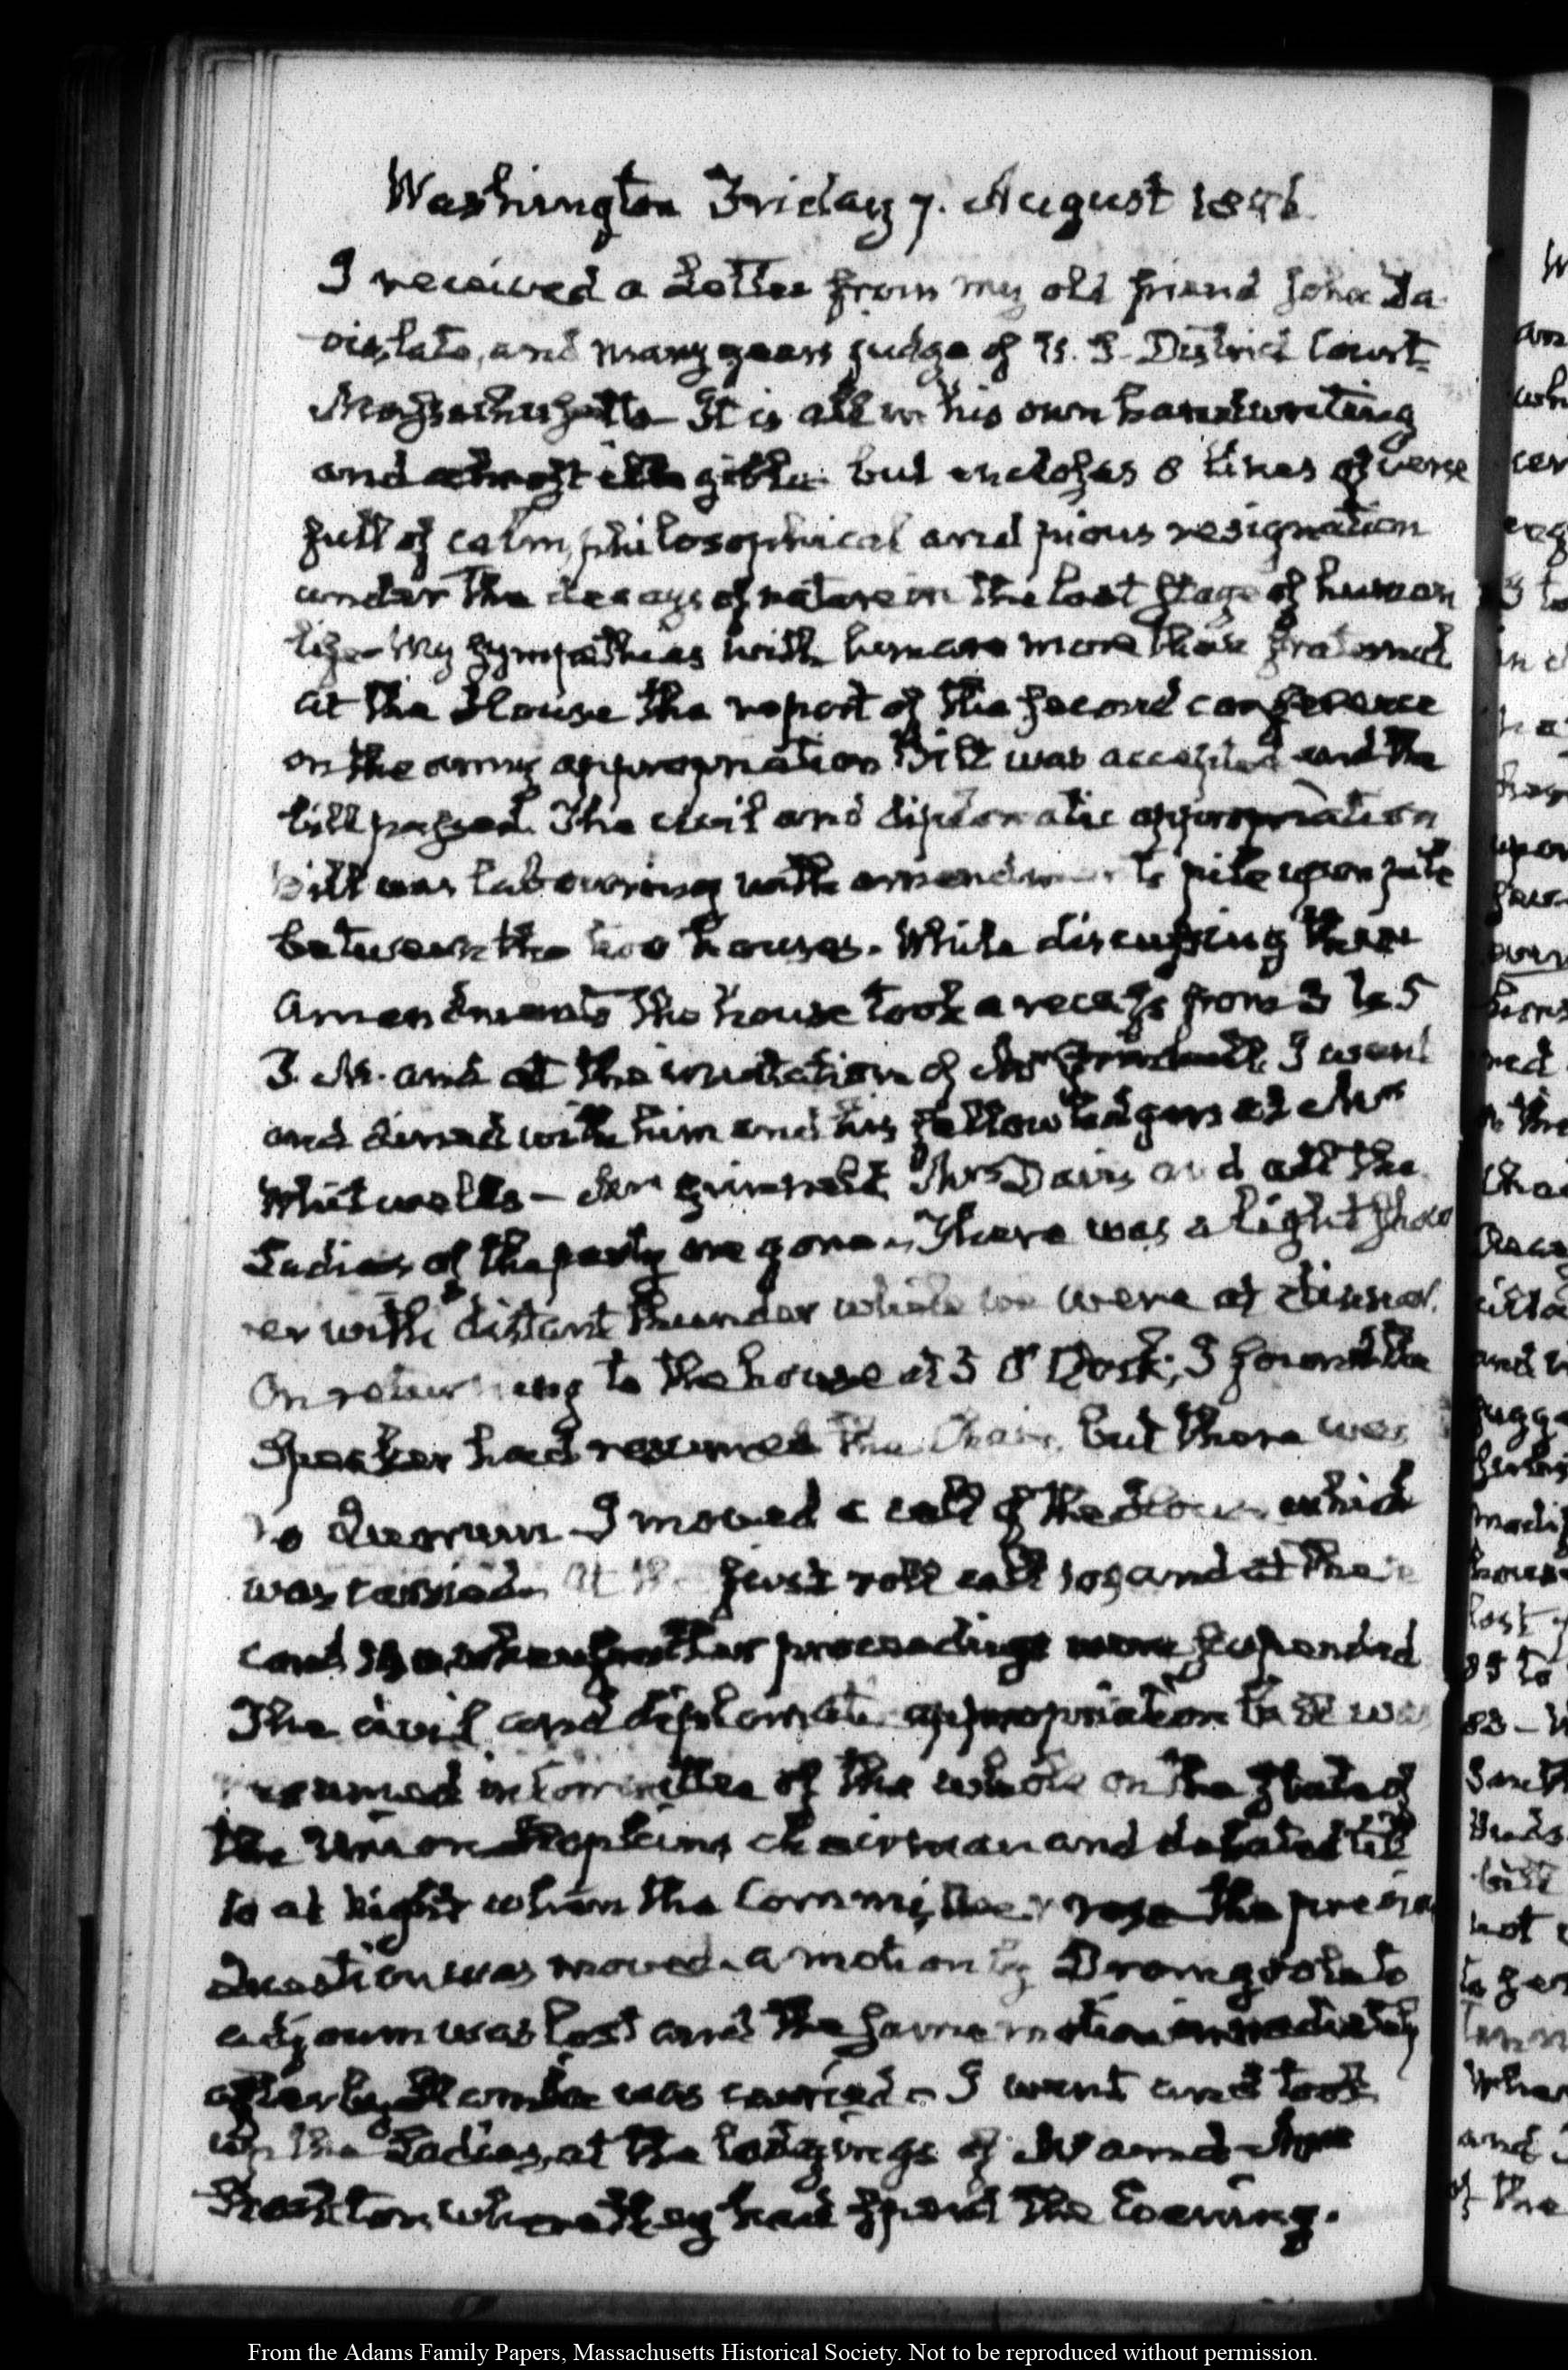 Washington Friday 7. August 1846.
I received a Letter from my old friend John Da-
vis, late, and many years judge of U. S. District Court
Massachusetts— It is all in his own handwriting
and almost illegible but encloses 8 lines of verse
full of calm, philosophical and pious resignation
under the decays of nature in the last stage of human
life— My sympathies with him are more than fraternal
at the House the report of the second conference
on the army appropriation Bill was accepted and the
bill passed. The civil and diplomatic appropriation
bill was labouring with amendments pile upon pile
between the two houses. While discussing these
amendments the house took a recess from 3 to 5
P. M. and at the invitation of Mr Grinnell, I went
and dined with him and his fellow lodgers at Mrs
Whitwell's— Mrs Grinnell, Mrs Davis and all the
Ladies of the party are gone— There was a light show-
er with distant thunder while we were at dinner.
On returning to the house at 5 O'Clock, I found the
Speaker had resumed the Chair, but there was
no Quorum I moved a call of the House which
was carried. At the first roll call 109 and at the
and when further proceedings were suspended
The civil and diplomatic appropriation bill was
resumed in Committee of the whole on the state of
the Union Hopkins chairman and debated till
10 at Night when the Committee rose the previous
Question was moved. a motion by Dromgoole to
adjourn was lost and the same motion immediately
after by was carried— I went and took
up the Ladies, at the lodgings of Mr and Mrs
Seaton, where they had spent the Evening.
From the Adams Family Papers, Massachusetts Historical Society. Not to be reproduced without permission.